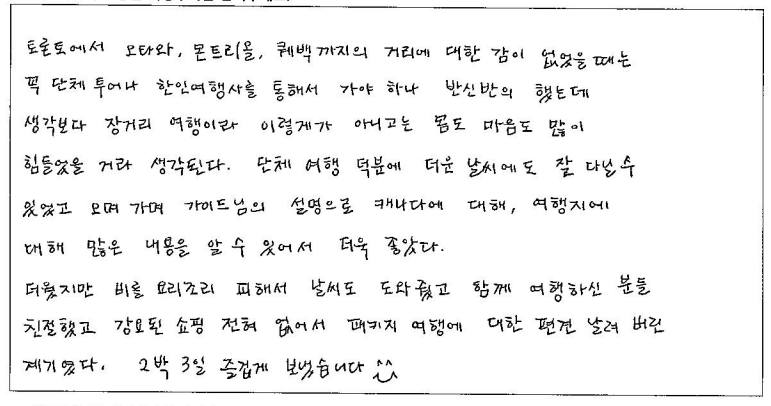 토론토에서 오타와, 몬트리올, 퀘백까지의 거리에 대한 감이 없었을때는
꼭 단체 투어나 한인여행사를 통해서 가야 하나 반신반의 했는데
생각보다 장거리 여행이라 이렇게가 아니고는 몸도 마음도 많이
힘들었을 거라 생각된다. 단체 여행 덕분에 더운 날씨에도 잘 다닐 수
있었고 오며 가며 가이드님의 설명으로 캐나다에 대해, 여행지에
대해 많은 내용을 알 수 있어서 더욱 좋았다.
더웠지만 비를 요리조리 피해서 날씨도 도와줬고 함께 여행하신 분들
친절했고 강요된 쇼핑 전혀 없어서 패키지 여행에 대한 편견 날려 버린
계기였다. 2박 3일 즐겁게 보냈습니다 ^^